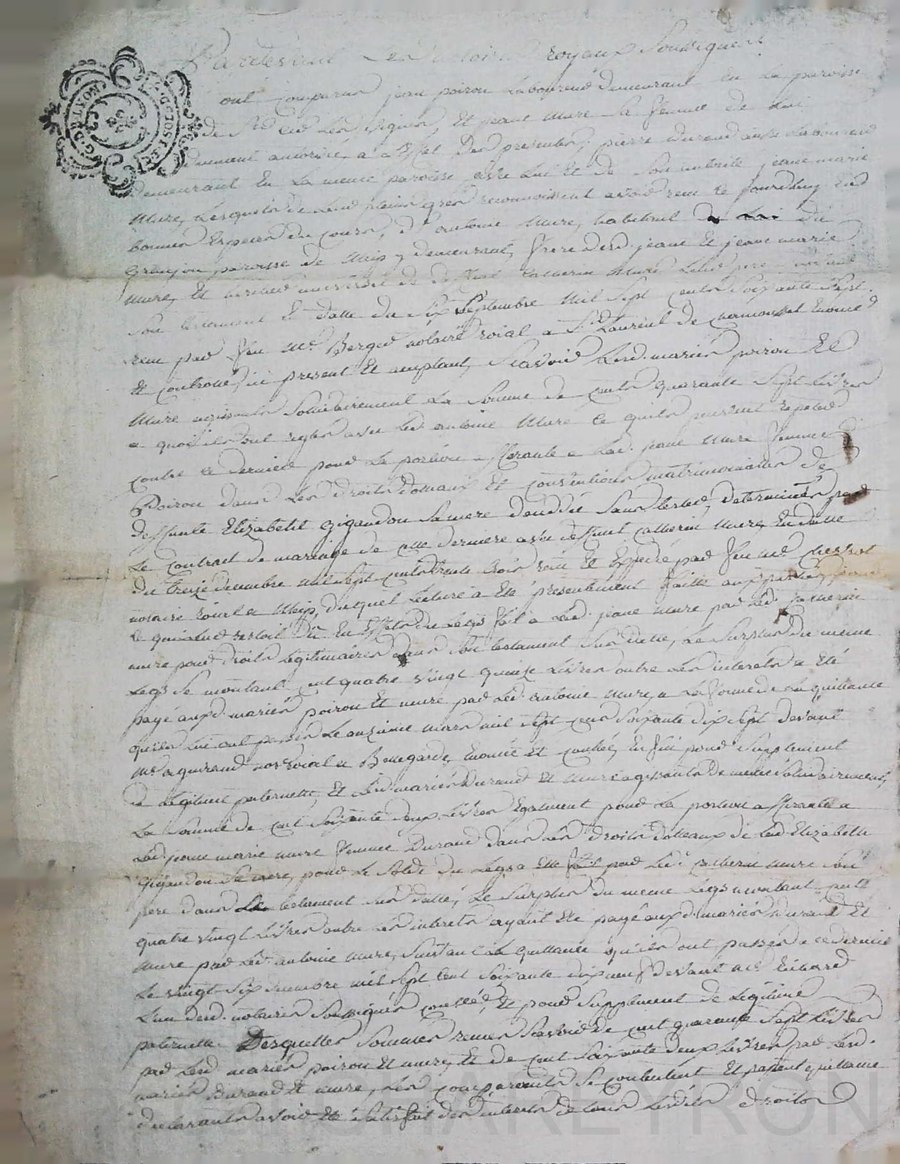 Pardevant Les notaires royaux Soussignés
ont comparus jean poirou Laboureur demeurant en la paroisse
de St et jeane mure sa femme de lui
autorisée a Effet Des presentes, pierre durand aussi Laboureur
demeurant En La meme paroisse avec lui Et de Son autorité jeane marie
mure, Lesquels de Leur plein gré reconnoissent avoir recu ce jourdhuy en
bonnes Especes du Cours, d'antoine mure, habitant du
paroisse de meis y demeurant, frere desd jeane Et jeane marie
mure, Et heritier de deffunt catherin mure Leur pere
Son testament En datte du Six Septembre mil Sept Cents Soixante Sept
recu par feu Me Berger notaire roial a St Laurent de Chamousset
Et controllé ici present Et acceptant, Scavoir Lesd mariés poirou Et
mure agissants Solidairement La Somme de Cents quarante Sept Livres
a quoi ils ont reglés avec led antoine mure ce quils peuvent repeter
contre ce dernier pour La portion afferante a Lad. jeane mure femme
Poirou dans Les droits dotaux Et Conventions matrimoniales de
deffunte Elizabeth gigandon Sa mere Sans testter, determinés par
Le Contrat de mariage de cette derniere avec deffunt catherin mure En datte
du treize decembre mil Sept Cents trente trois recu Et Expedié par feu me
notaire roial a meis, duquel lecture a Eté presentement faitte aux parties,
Le quil lui restoit Du En Effets du Legs fait a Lad. jeane mure par led. catherin
mure pour droits Legitimaires dans Son testament Sus datté, Le Surplus du meme
Legs Se montant cent quatre vingt quinze Livres outre Les interets a Eté
payé auxd mariés poirou Et mure par Led. antoine mure, a La forme de La quittance
quils lui ont passée Le onzieme mars mil Sept Cens Soixante dix Sept devant
me aguiraud not roial a Et Enfin pour Supplement
de Legitime paternelle Et Lesd mariés Durand Et mure agissants de meme Solidairement,
La Somme de cent Soixante deux Livres Egalement pour La portion afferante a
Lad. jeane marie mure femme Durand dans Les droits dotaux de Lad Elizabeth
gigandon Sa mere, pour Le Solde du Legs a Elle fait par Led. catherin mure Son
pere dans Le testament Sus datté, Le Surplus du meme Legs montant cents
quatre vingt Livres outre Les interets ayant Eté payé auxd. mariés durand Et
mure par Led. antoine mure, Suivant La quittance quils ont passée a ce dernier
Le vingt Six mil Sept Cent Soixante dix neuf devant me
L'un desd. notaires Soussignés controllée, Et pour Supplement de Legitime
paternelle Desquelles Sommes recues Scavoir de cent quarante Sept Livres
par Lesd mariés poirou Et mure, Et de Cent Soixante deux Livres par Lesd.
mariés Durand Et mure, Les comparants Se contentent Et passent quittance
declarants avoir Eté Satisfait des interets de tous Lesdits droits
CHAREYRON